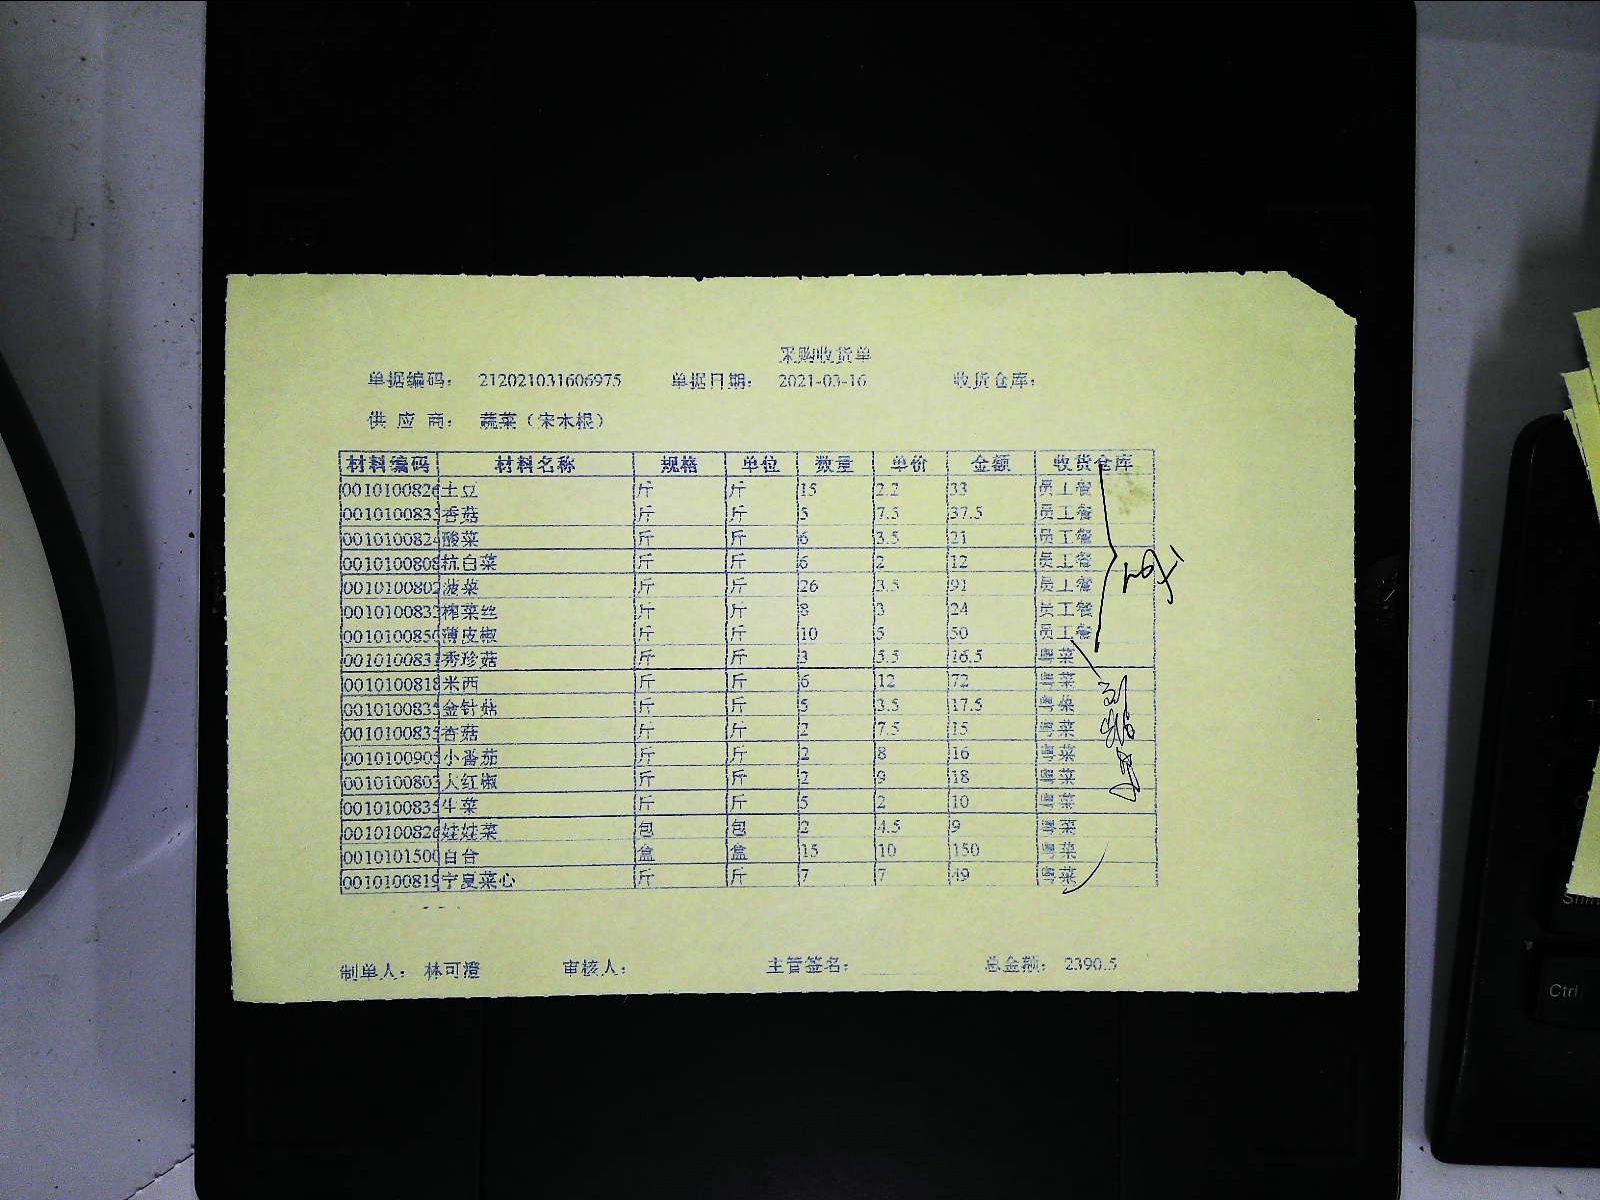 采购收货单
单据编码： 212021031606975 单据日期： 2021-03-16 收货仓库：
供 应 商： 蔬菜（宋木根）
材料编码 材料名称 规格 单位 数量 单价 金额 收货仓库
0010100826 土豆 斤 斤 15 2.2 33 员工餐
0010100835 香菇 斤 斤 5 7.5 37.5 员工餐
0010100824 酸菜 斤 斤 6 3.5 21 员工餐
0010100808 杭白菜 斤 斤 6 2 12 员工餐
0010100802 菠菜 斤 斤 26 3.5 91 员工餐
0010100833 榨菜丝 斤 斤 8 3 24 员工餐
0010100850 薄皮椒 斤 斤 10 5 50 员工餐
0010100831 秀珍菇 斤 斤 3 5.5 16.5 粤菜
0010100818 米西 斤 斤 6 12 72 粤菜
0010100835 金针菇 斤 斤 5 3.5 17.5 粤菜
0010100835 香菇 斤 斤 2 7.5 15 粤菜
0010100905 小番茄 斤 斤 2 8 16 粤菜
0010100803 大红椒 斤 斤 2 9 18 粤菜
0010100835 生菜 斤 斤 5 2 10 粤菜
0010100826 娃娃菜 包 包 2 4.5 9 粤菜
0010101500 白合 盒 盒 15 10 150 粤菜
0010100819 宁夏菜心 斤 斤 7 7 49 粤菜
制单人： 林可澄 审核人： 主管签名： 总金额： 2390.5